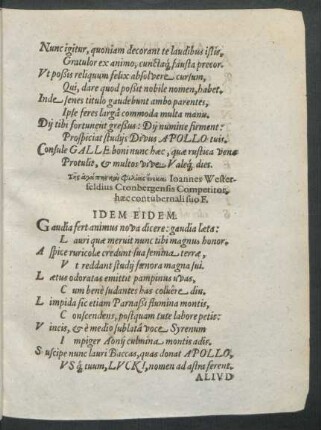 Nunc igitur, quoniam decorant te laudibus istis,
Gratulor ex animo, cunctaq́; fausta precor.
Vt possis reliquum felix absolvere cursum,
Qui, dare quod possit nobile nomen, habet.
Inde senes titulo gaudebunt ambo parentes,
Ipse feres largâ commoda multa manu.
Dij tibi fortunent gressus: Dij numine firment:
Prospiciat studijs Divus APOLLO tuis.
Consule GALLE boni nunc hæc, quæ rustica vena
Protulit, & multos vive Valeq́; dies.
Ioannes Wester-
feldius Cronbergensis Competitor
hæc contubernali suo F.
IDEM EIDEM.
Gaudia fert animus nova dicere: gaudia læta:
Lauri quæ meruit nunc tibi magnus honor.
Aspice ruricolæ credunt sua semina terræ,
Vt reddant studij fœnora magna sui.
Lætus odoratas emittit pampinus uvas,
Cum benè sudantes has coluêre diu.
Limpida sic etiam Parnassi flumina montis,
Conscendens, postquam tute labore petis:
Vincis, & è medio sublatâ voce Syrenum
Impiger Aonij culmina montis adis.
Suscipe nunc lauri Baccas, quas donat APOLLO,
VSq́; tuum, LVCKI, nomen ad astra ferent.
ALIVD